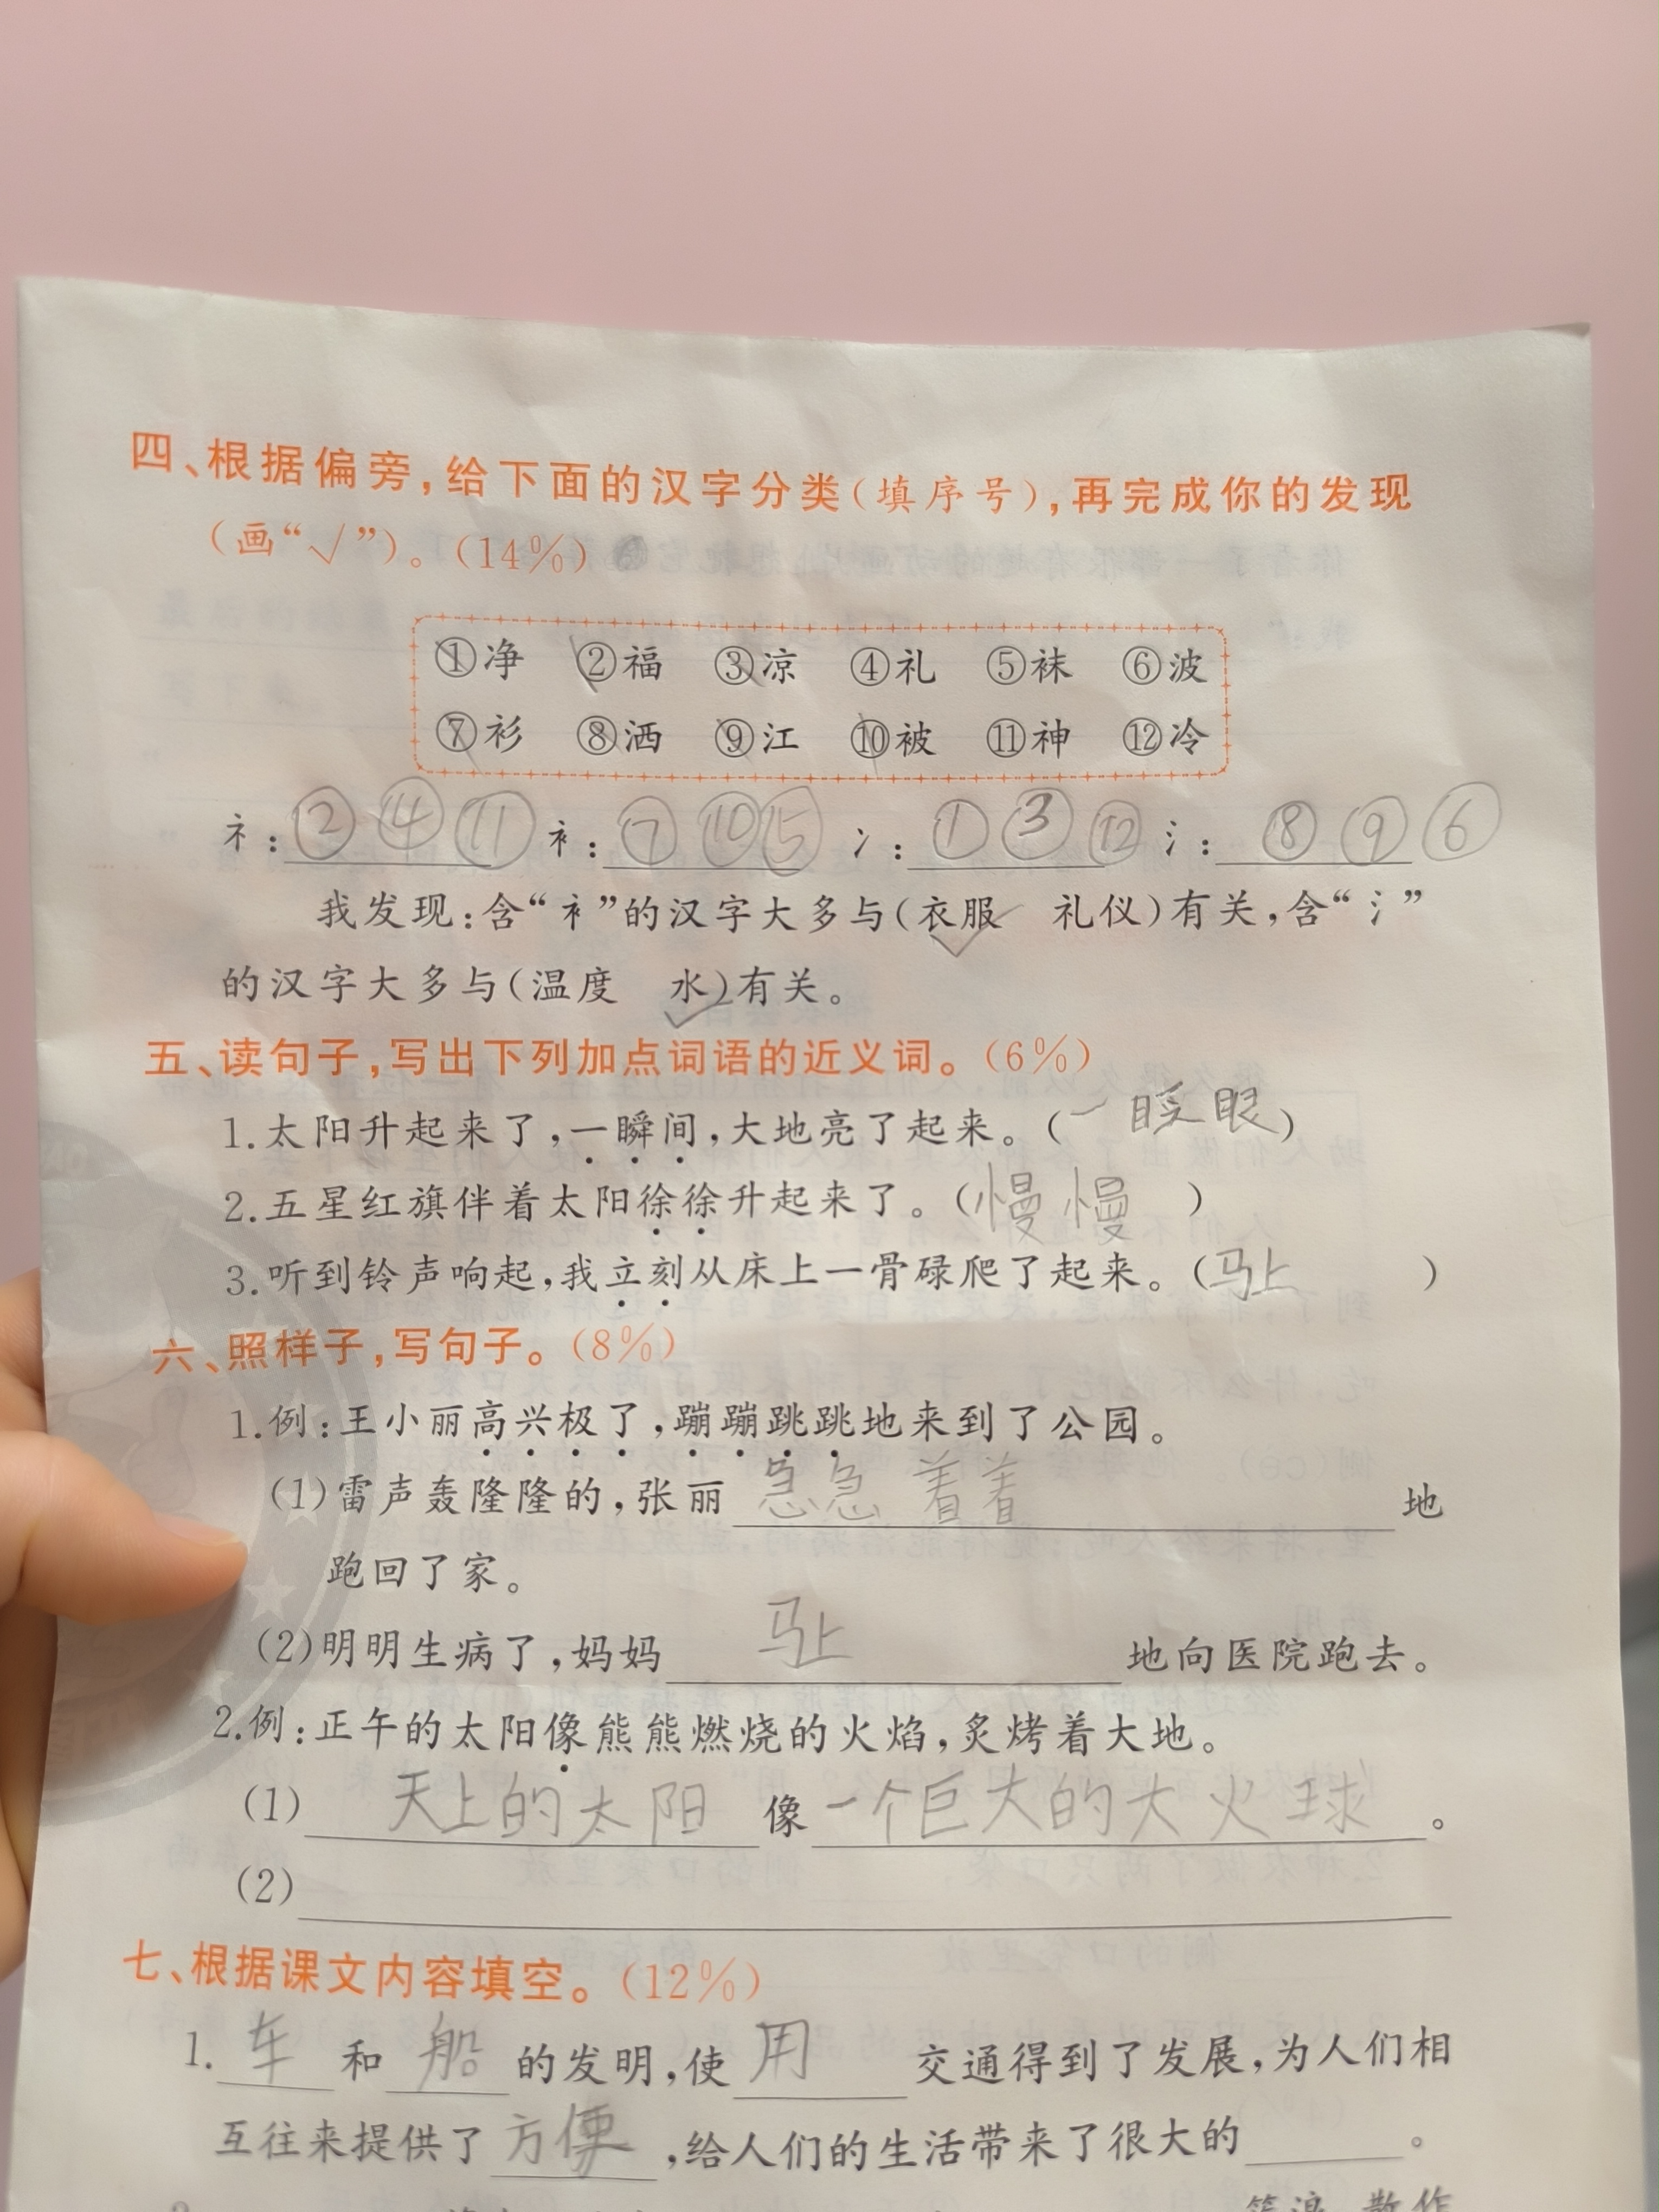 四、根据偏旁,给下面的汉字分类(填序号),再完成你的发现
(画“√”)。(14%)
①净 ②福 ③凉 ④礼 ⑤袜 ⑥波
⑦衫 ⑧洒 ⑨江 ⑩被 ⑪神 ⑫冷
礻:②④⑪ 衤:⑦⑩⑤ 冫:①③⑫ 氵:⑧⑨⑥
我发现:含“衤”的汉字大多与(衣服✓ 礼仪)有关,含“氵”
的汉字大多与(温度 水✓)有关。
五、读句子,写出下列加点词语的近义词。(6%)
1.太阳升起来了,一瞬间,大地亮了起来。(一眨眼)
2.五星红旗伴着太阳徐徐升起来了。(慢慢)
3.听到铃声响起,我立刻从床上一骨碌爬了起来。(马上)
六、照样子,写句子。(8%)
1.例:王小丽高兴极了,蹦蹦跳跳地来到了公园。
(1)雷声轰隆隆的,张丽急急着着地
跑回了家。
(2)明明生病了,妈妈马上地向医院跑去。
2.例:正午的太阳像熊熊燃烧的火焰,炙烤着大地。
(1)天上的太阳像一个巨大的大火球。
(2)
七、根据课文内容填空。(12%)
1.车和船的发明,使用交通得到了发展,为人们相
互往来提供了方便,给人们的生活带来了很大的 。